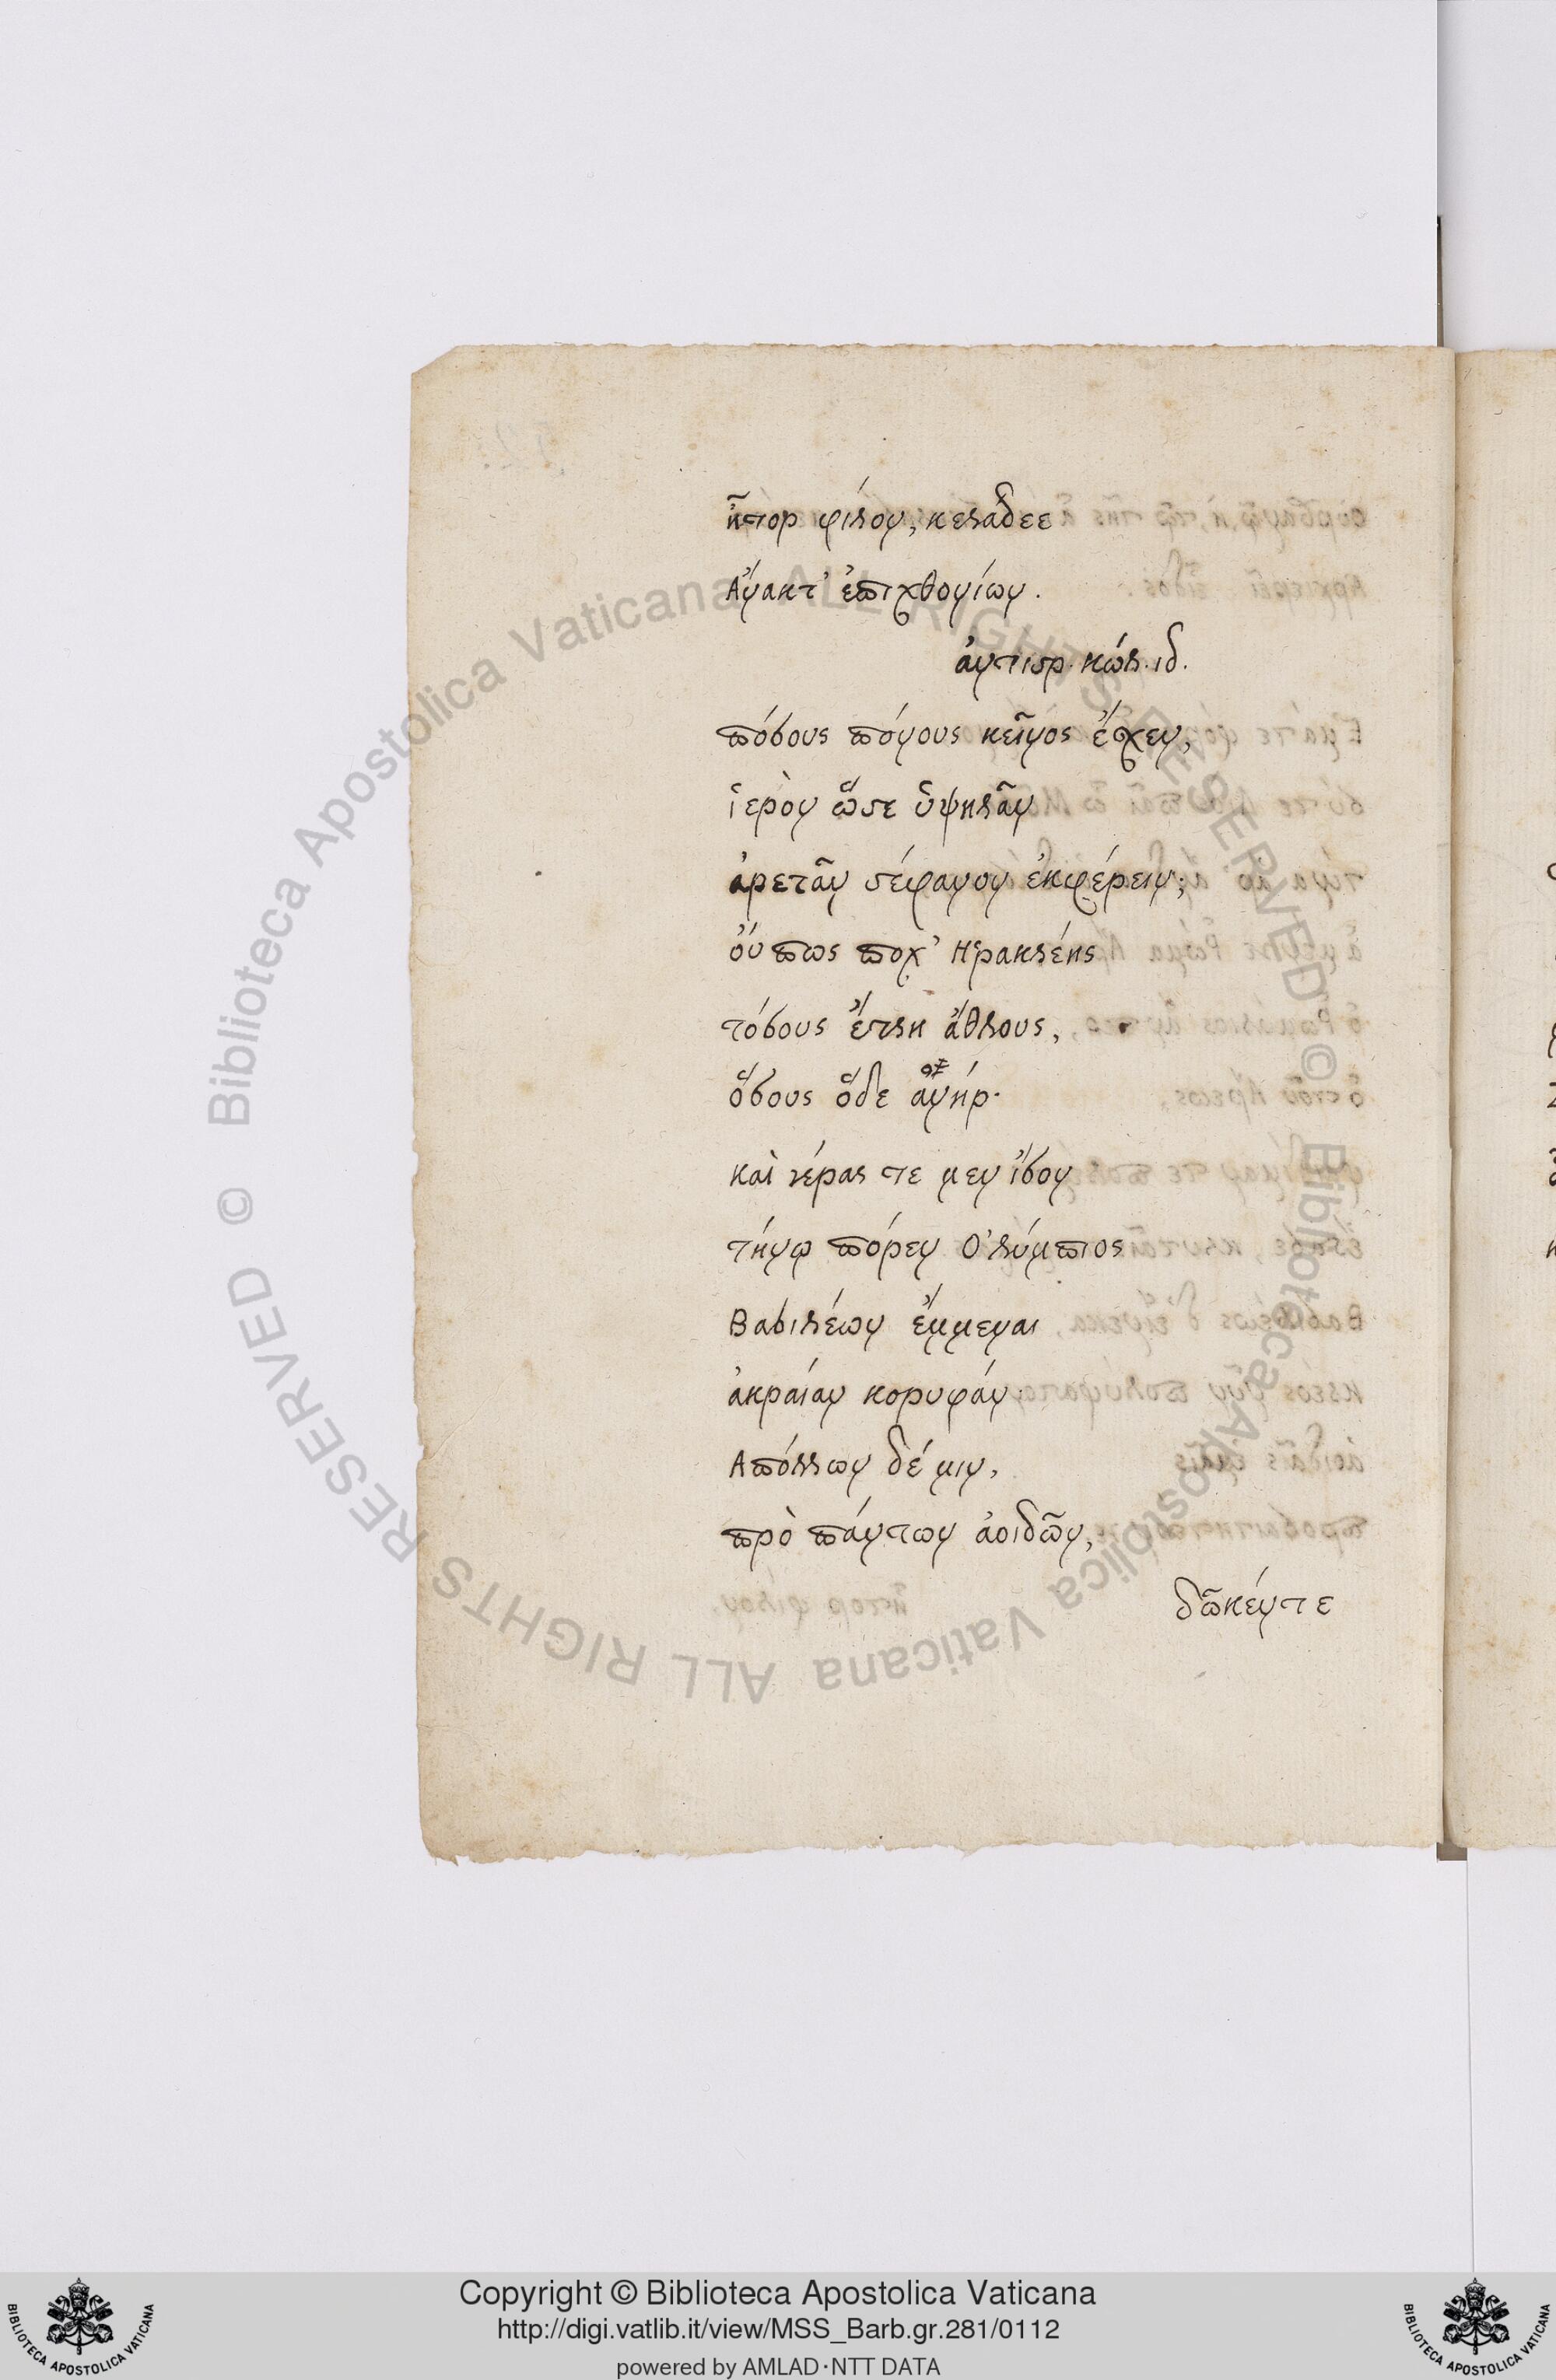 ἦτορ φίλον, κελαδεε
Ἄνακτ' ἐπιχθονίων.
ἀντιστρ. κώλ. ιδ.
πόσους πόνους κεῖνος ἔσχεν,
ἱερὸν ὥστε ὑψηλᾶν
ἀρετᾶν στέφανον ἐκφέρειν;
οὔπως ποχ' Ἡρακλέης
τόσους ἔτλη ἄθλους,
ὅσους ὅδε ἀνήρ·
καὶ γέρας τε μεν ἴσον
τήνῳ πόρεν Ὀλύμπιος
Βασιλέων ἔμμεναι
ἀκραίαν κορυφάν·
Ἀπόλλων δέ μιν,
πρὸ πάντων ἀοιδῶν,
δῶκέντε
Biblioteca Apostolica Vaticana ALL RIGHTS RESERVED ©
Biblioteca Apostolica Vaticana ALL RIGHTS RESERVED ©
Copyright © Biblioteca Apostolica Vaticana
http://digi.vatlib.it/view/MSS_Barb.gr.281/0112
powered by AMLAD·NTT DATA
BIBLIOTECA APOSTOLICA VATICANA
BIBLIOTECA APOSTOLICA VATICANA